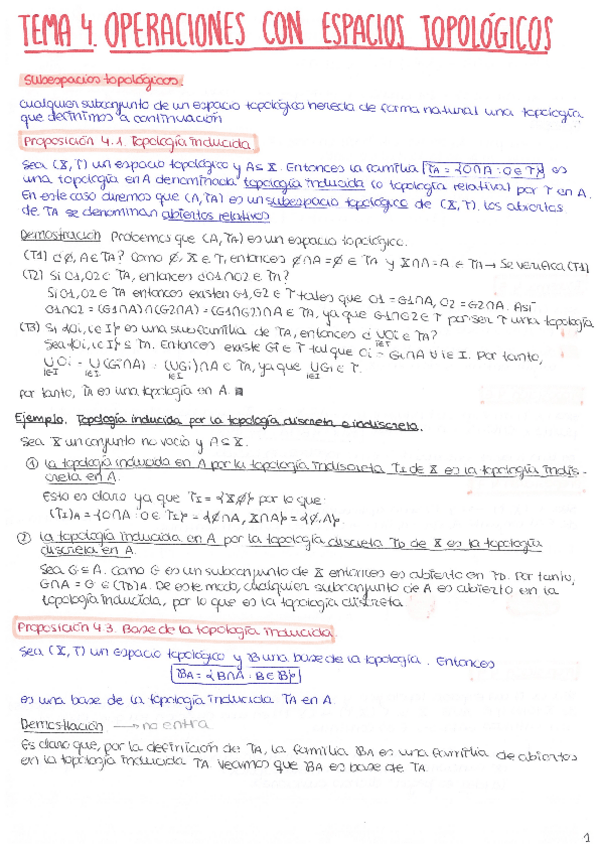 TEMA 4. OPERACIONES CON ESPACIOS TOPOLÓGICOS
Subespacios topológicos.
Cualquier subconjunto de un espacio topológico hereda de forma natural una topología
que definimos a continuación
Proposición 4.1. Topología inducida
Sea (X,T) un espacio topológico y A⊆X. Entonces la familia TA = {O∩A : O∈T} es
una topología en A denominada topología inducida (o topología relativa) por T en A.
En este caso diremos que (A,TA) es un subespacio topológico de (X,T). Los abiertos
de TA se denominan abiertos relativos
Demostración Probemos que (A,TA) es un espacio topológico.
(T1) ¿∅, A∈TA? Como ∅, X∈T, entonces ∅∩A=∅ ∈ TA y X∩A=A ∈ TA → Se verifica (T1)
(T2) Si O1,O2 ∈ TA, entonces ¿O1∩O2 ∈ TA?
Si O1,O2 ∈ TA entonces existen G1,G2 ∈ T tales que O1 = G1∩A, O2 = G2∩A. Así
O1∩O2 = (G1∩A)∩(G2∩A) = (G1∩G2)∩A ∈ TA, ya que G1∩G2 ∈ T por ser T una topología
(T3) Si {Oi, i∈I} es una subfamilia de TA, entonces ¿ ∪Oi ∈ TA? i∈I
Sea {Oi, i∈I} ⊆ TA. Entonces existe Gi ∈ T tal que Oi = Gi∩A ∀i∈I. Por tanto,
∪Oi = ∪(Gi∩A) = (∪Gi)∩A ∈ TA, ya que ∪Gi ∈ T.
i∈I i∈I i∈I i∈I
por tanto, TA es una topología en A. ■
Ejemplo. Topología inducida por la topología discreta e indiscreta.
Sea X un conjunto no vacío y A⊆X.
① La topología inducida en A por la topología indiscreta TI de X es la topología indis-
creta en A.
Esto es claro ya que TI = {X,∅} por lo que:
(TI)A = {O∩A : O∈TI} = {∅∩A, X∩A} = {∅,A}
② La topología inducida en A por la topología discreta TD de X es la topología
discreta en A.
Sea G⊆A. Como G es un subconjunto de X entonces es abierto en TD. Por tanto,
G∩A = G ∈ (TD)A. De este modo, cualquier subconjunto de A es abierto en la
topología inducida, por lo que es la topología discreta.
Proposición 4.3. Base de la topología inducida
Sea (X,T) un espacio topológico y B una base de la topología. Entonces
BA = {B∩A : B∈B}
es una base de la topología inducida TA en A.
Demostración → no entra
Es claro que, por la definición de TA, la familia BA es una familia de abiertos
en la topología inducida TA. Veamos que BA es base de TA.
1